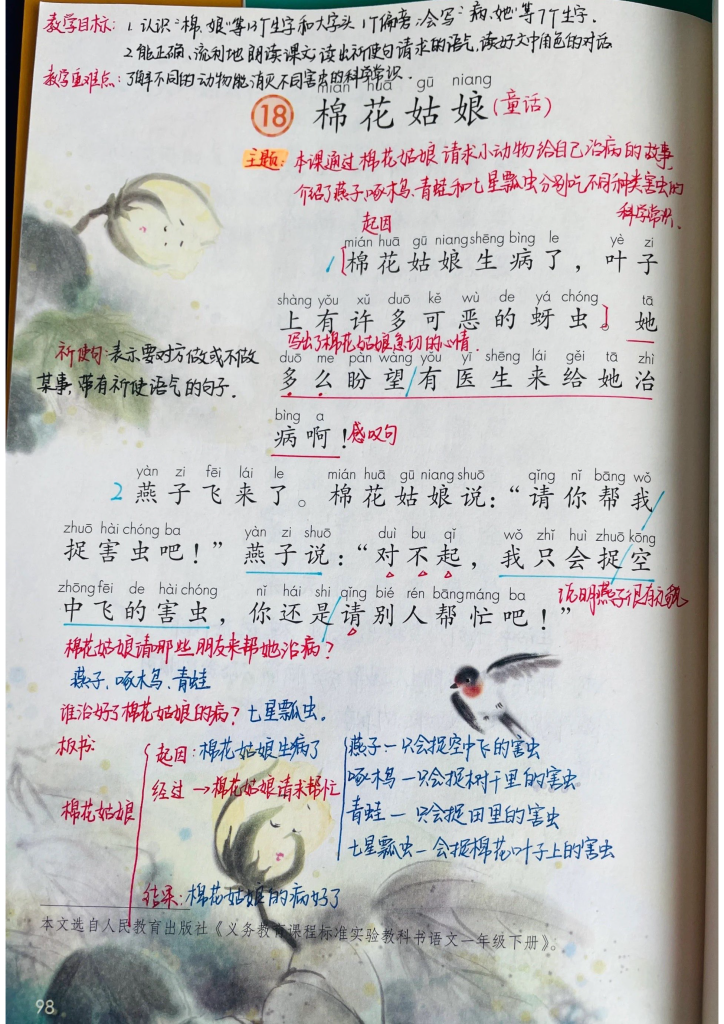 教学目标: 1. 认识"棉、娘"等13个生字和大字头1个偏旁;会写"病、她"等7个生字.
2. 能正确、流利地朗读课文;读出祈使句请求的语气,读好文中角色的对话
教学重难点: 了解不同的动物能消灭不同害虫的科学常识.
mián huā gū niang
18 棉花姑娘(童话)
主题: 本课通过棉花姑娘请求小动物给自己治病的故事
介绍了燕子、啄木鸟、青蛙和七星瓢虫分别吃不同种类害虫的
科学常识.
起因
mián huā gū niang shēng bìng le yè zi
1 棉花姑娘生病了,叶子
shàng yǒu xǔ duō kě wù de yá chóng tā
上有许多可恶的蚜虫。她
写出了棉花姑娘急切的心情.
祈使句:表示要对方做或不做
某事,带有祈使语气的句子.
duō me pàn wàng yǒu yī shēng lái gěi tā zhì
多么盼望有医生来给她治
bìng a
病啊! 感叹句
yàn zi fēi lái le mián huā gū niang shuō qǐng nǐ bāng wǒ
2 燕子飞来了。棉花姑娘说:“请你帮我
zhuō hài chóng ba yàn zi shuō duì bu qǐ wǒ zhǐ huì zhuō kōng
捉害虫吧!”燕子说:“对不起,我只会捉空
zhōng fēi de hài chóng nǐ hái shi qǐng bié rén bāng máng ba
中飞的害虫,你还是请别人帮忙吧!”
说明燕子很有礼貌
棉花姑娘请哪些朋友来帮她治病?
燕子、啄木鸟、青蛙
谁治好了棉花姑娘的病?七星瓢虫.
板书:
棉花姑娘
起因:棉花姑娘生病了
经过→棉花姑娘请求帮忙
燕子—只会捉空中飞的害虫
啄木鸟—只会捉树干里的害虫
青蛙—只会捉田里的害虫
七星瓢虫—会捉棉花叶子上的害虫
结果:棉花姑娘的病好了
本文选自人民教育出版社《义务教育课程标准实验教科书语文一年级下册》。
98